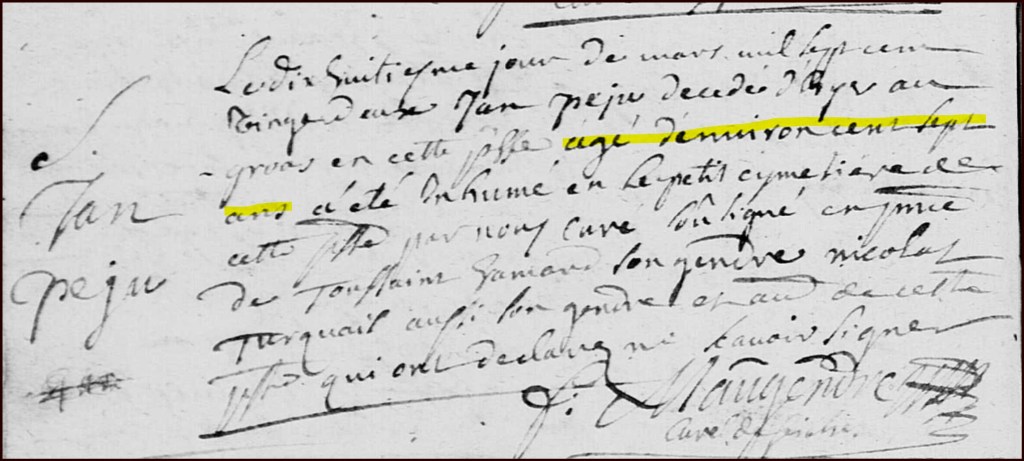 S.
Jan
peju
Le dix huitiesme jour de mars mil sept cent
vingt deux Jan peju decede d'hyer au
groas en cette psse agé d'environ cent sept
ans a été Inhumé en le petit cymetiere de
cette psse par nous curé soussigné en pnce
de Toussaint hamard son gendre nicolas
Turquais aussi son gendre et au de cette
psse qui ont declaré ne scavoir signer
f: Maugendre
curé